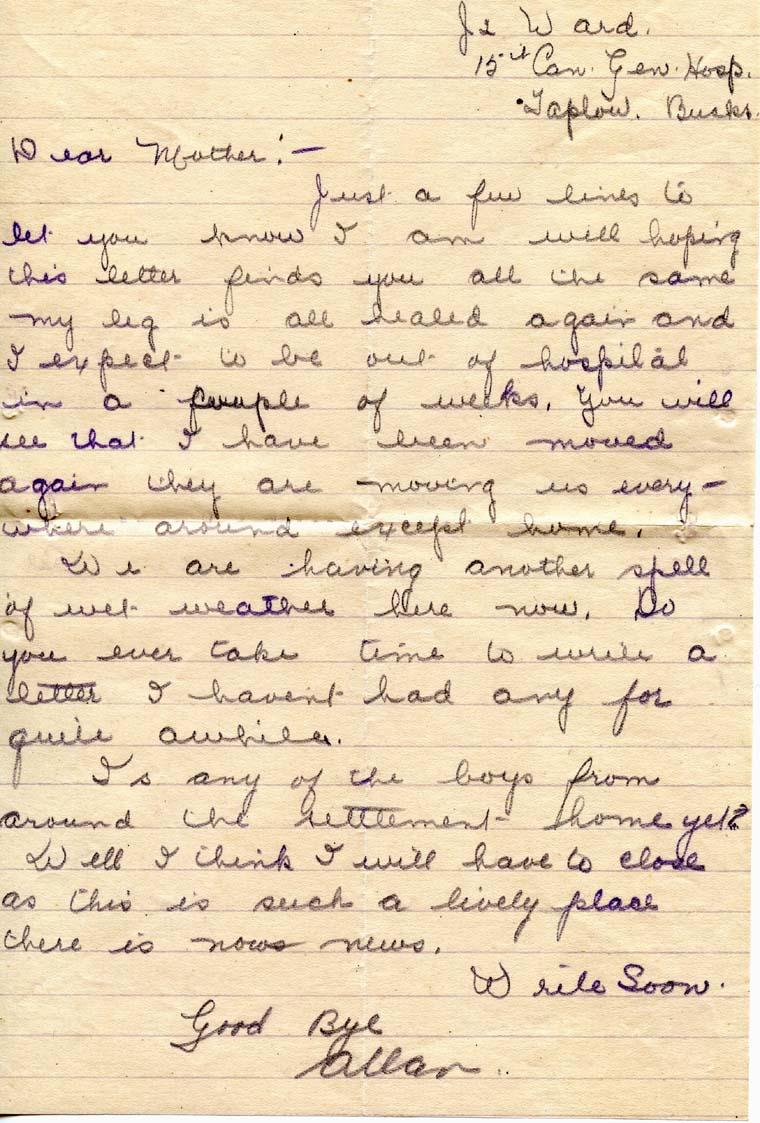 J2 Ward.
15th Can. Gen. Hosp.
Taplow. Bucks.
Dear Mother:—
Just a few lines to
let you know I am well hoping
this letter finds you all the same
my leg is all healed again and
I expect to be out of hospital
in a couple of weeks. You will
see that I have been moved
again they are moving us every-
where around except home.
We are having another spell
of wet weather here now. Do
you ever take time to write a
letter I havent had any for
quite awhile.
Is any of the boys from
around the settlement home yet?
Well I think I will have to close
as this is such a lively place
there is news.
Write Soon.
Good Bye
Allan.